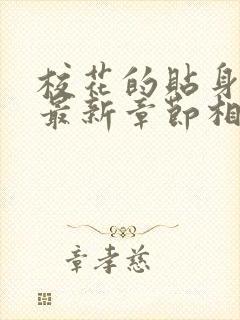 校花的贴身
最新章节相
章孝慈